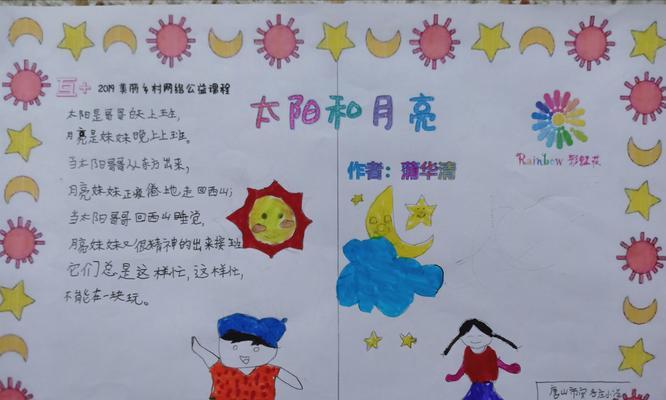 互+ 2019 美丽乡村网络公益课程
太阳和月亮
作者：蒲华清
Rainbow 彩虹花
太阳是哥哥白天上班，
月亮是妹妹晚上上班。
当太阳哥哥从东方出来，
月亮妹妹正疲倦地走回西山；
当太阳哥哥回西山睡觉，
月亮妹妹又很精神的出来接班
它们总是这样忙，这样忙，
不能在一块玩。
唐山市